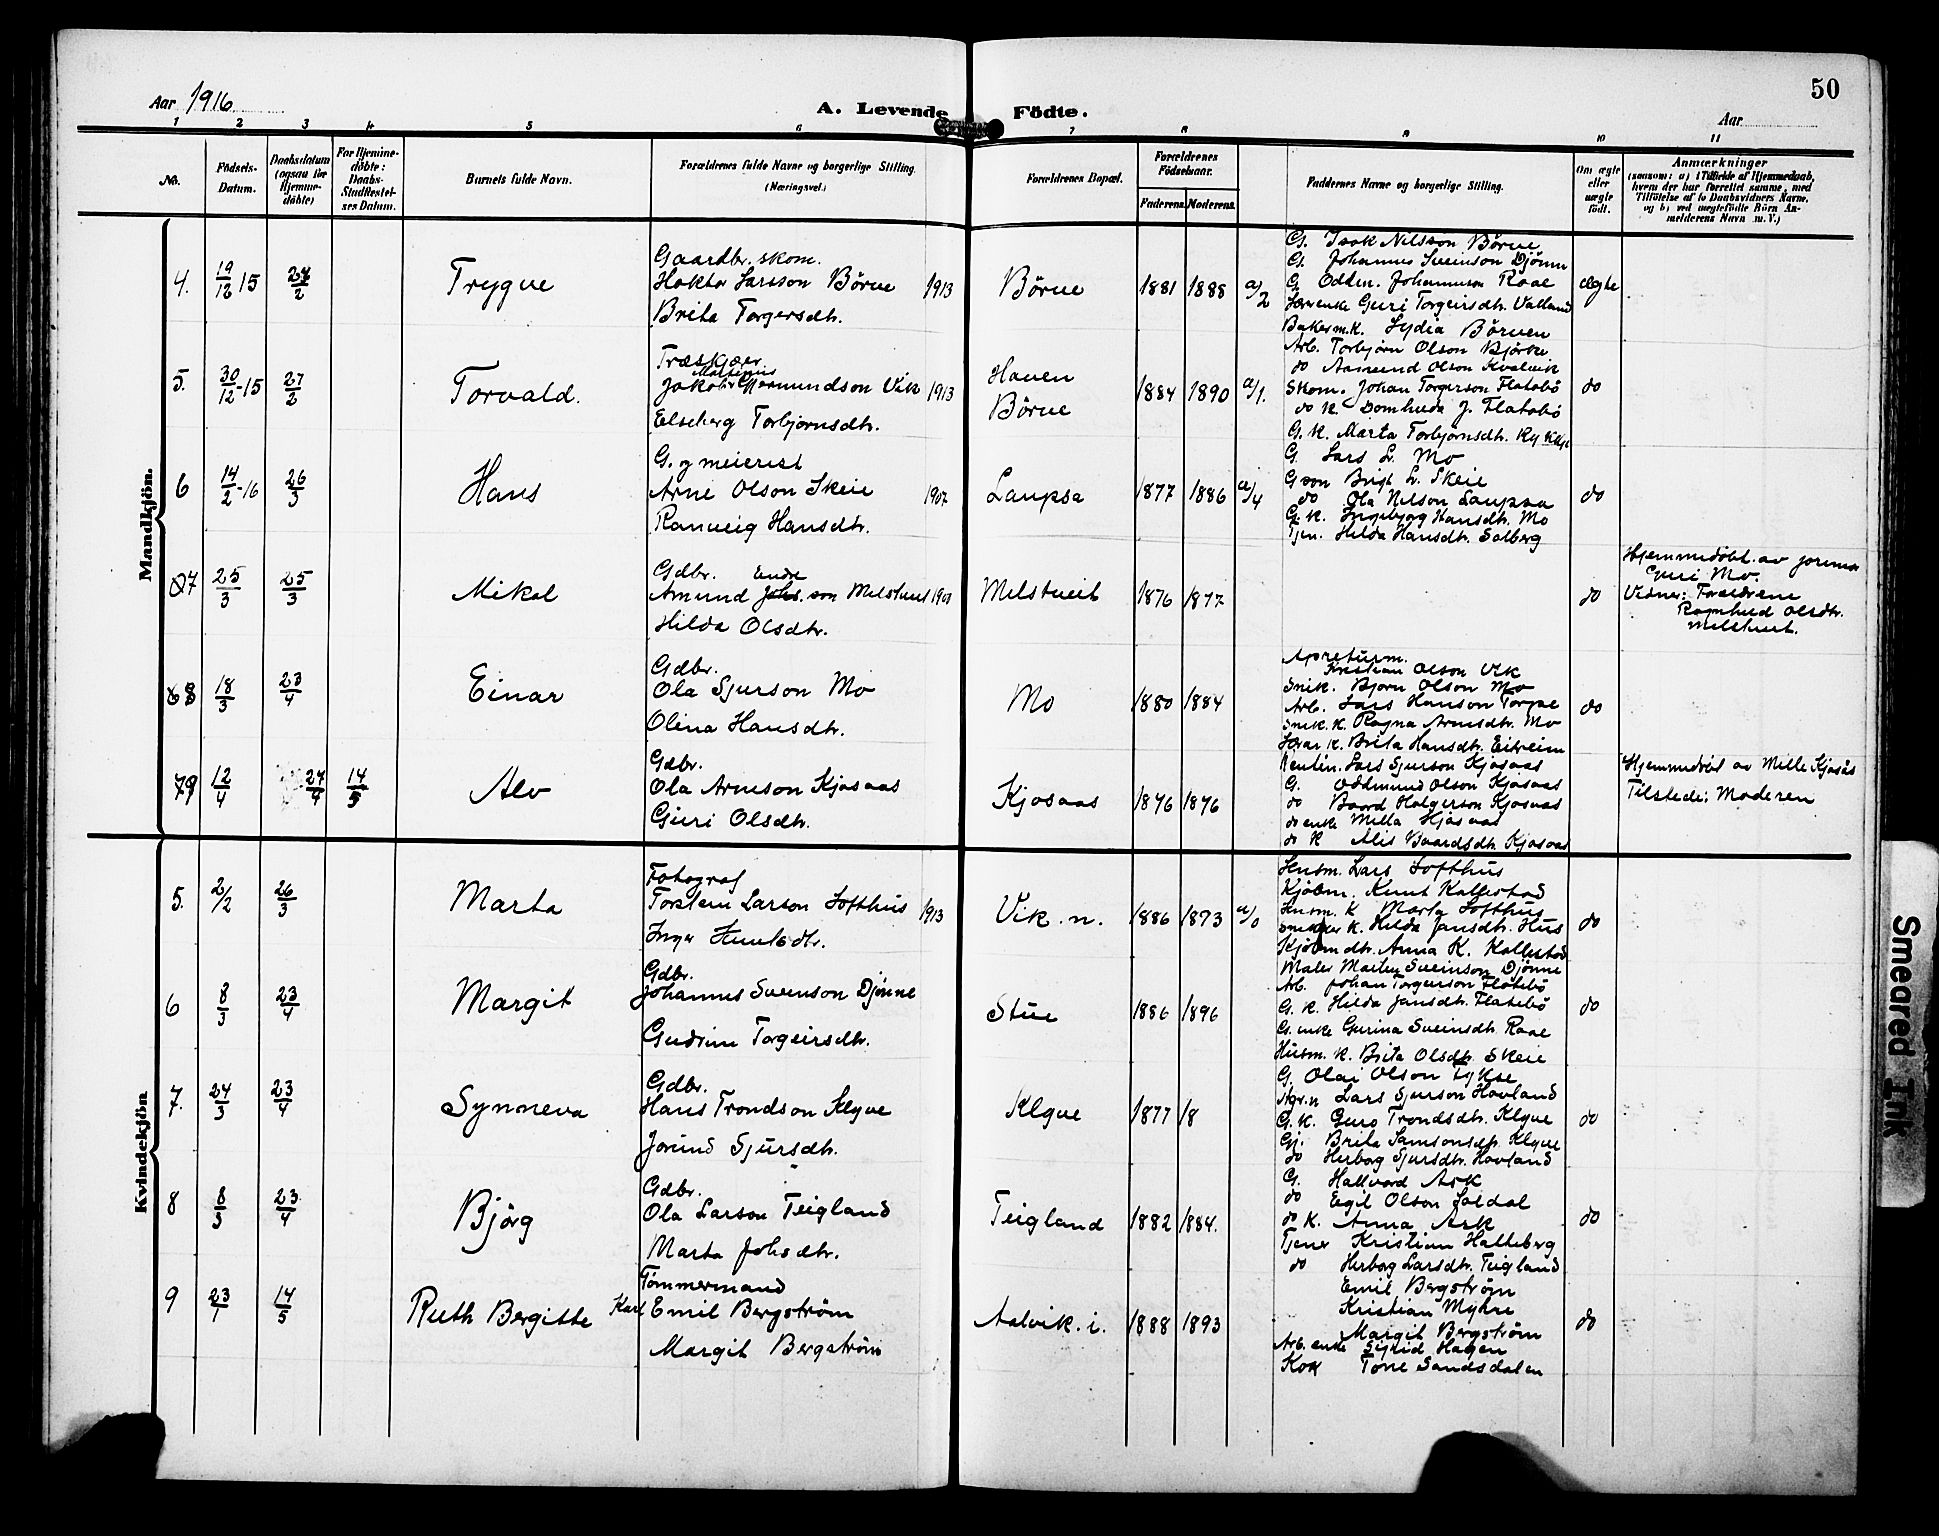 50
Aar 1916
A. Levende Födte.
Aar
1 2 3 4 5 6 7 8 9 10 11
No.
Födsels-Datum.
Daabsdatum (ogsaa for Hjemmedöbte)
For Hjemmedöbte: Daabs-Stadfestelses Datum.
Barnets fulde Navn.
Forældrenes fulde Navne og borgerlige Stilling. (Næringsvei.)
Forældrenes Bopæl.
Forældrenes Födselsaar.
Faderens. Moderens.
Faddernes Navne og borgerlige Stilling.
Om ægte eller uægte födt.
Anmærkninger
(saasom: a) i Tilfælde af Hjemmedaab,
hvem der har forrettet samme, med
Tilföielse af to Daabsvidners Navne,
og b) ved uægtefödte Börn An-
melderens Navn m.V.)
Mandkjön.
4. 19/12 15 27/2 Trygve
Gaardbr. skom.
Haktor Larsson Börve 1913
Brita Torgersdtr.
Börve 1881 1888 a/2
G. Isak Nilsson Börve
G. Johannes Sveinson Djönne
G. Oddm. Johannson Raae
Guri Torgeirsdtr. Valland
Bakerm.k. Lydia Börven
ægte
5. 30/12-15 27/2 Torvald.
Træskjær
Jakob Martinius Germundson Vik 1913
Elseberg Torbjornsdtr.
Haven
Börve
1884 1890 a/1.
Arb. Torbjörn Olson Bjørke
do Aamund Olson Kvalvik
Skom. Johan Torgerson Flatebö
do k. Domhilda J. Flatebö
G. K. Marta Torbjørnsdtr.
do
6 14/2-16 26/3 Hans
G. og meierist
Arne Olson Skeie 1907
Ranveig Hansdtr.
Laupsa 1877 1886 a/4
G. Lars L. Mo
Gson Brigt L. Skeie
do Ola Nilson Laupsa
G. K. Ingebjorg Hansdtr. Mo
Tjen. Hilda Hansdtr. Solberg
do
7 25/3 25/3 Mikal
Gdbr. Endre
Amund Johs.son Melstveit
Hilda Olsdtr.
Melstveit 1876 1877
do
Hjemmedöbt av jormor
Guri Mo.
Vidner: Foreldrene
Ragnhild Olsdtr.
Melstveit.
8 18/3 23/4 Einar
Gdbr.
Ola Sjurson Mo
Olina Hansdtr.
Mo 1880 1884
Apreturm.
Kristian Olson Vik
Snik. Bjorn Olson Mo
Arb. Lars Hanson Torpe
Snik. k. Ragna Arnesdtr. Mo
Lærar k. Brita Hansdtr. Eitreim
do
9 12/4 24/4 14/5 Alv
Gdbr.
Ola Arneson Kjosaas
Guri Olsdtr.
Kjosaas 1876 1876
Lars Sjurson Kjosaas
G. Oddmund Olson Kjosaas
do Baard Holgerson Kjosaas
do enke Milla Kjosaas
do K Alis Baardsdtr Kjosaas
Hjemmedöbt av Mille Kjosås
Tilstede: Moderen
Kvindekjön
5. 2/2 26/3 Marta
Fotograf
Torstein Larson Lofthus 1913
Inger Knutsdtr.
Vik. n. 1886 1873 a/0
Husm. Lars Lofthus
Kjöbm. Knut Kallestad
Husm. K Marta Lofthus
Snikker k. Hilda Jansdtr. Hus
Kjöbmdtr. Anna K. Kallestad
do
6 8/3 23/4 Margit
Gdbr.
Johannes Sveinson Djönne
Gudrun Torgeirsdtr.
Stue 1886 1896
Maler Martin Sveinson Djönne
Arb. Johan Torgerson Flatebö
G. K. Hilda Jansdtr. Flatebö
G. enke Gurina Sveinsdtr. Raae
Husm. k. Brita Olsdtr. Skeie
do
7. 24/3 23/4 Synneva
Gdbr.
Hans Trondson Klyve
Jorund Sjursdtr.
Klyve 1877 18
G. Olai Olson Tykse
Lars Sjurson Hovland
G. K. Guro Trondsdtr. Klyve
Gj. Brita Samsonsdtr. Klyve
do Herborg Sjursdtr. Hovland
do
8 8/3 23/4 Bjórg
Gdbr.
Ola Larson Teigland
Marta Johsdtr.
Teigland 1882 1884.
G. Hallvard Ask
do Egil Olson Soldal
do K. Anna Ask
Tjener Kristian Halleberg
do Herborg Larsdtr. Teigland
do
9 23/1 14/5 Ruth Bergitte
Tömmermand
Karl Emil Bergström
Margit Bergström
Aalvik. i. 1888 1893
Emil Bergström
Kristian Myhre
Margit Bergström
Arb. enke Sigrid Hagen
Kok Tone Sandsdalen
do
Smeared Ink